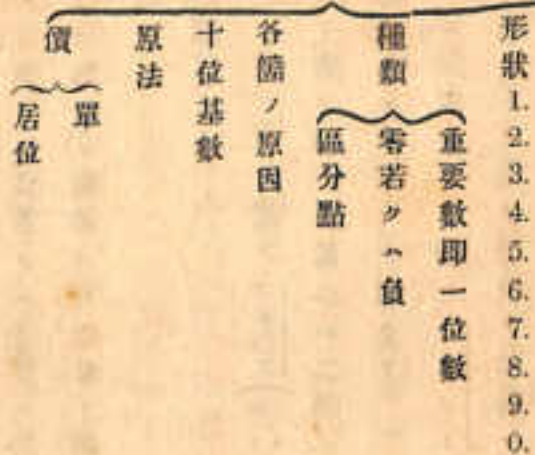 形狀 1. 2. 3. 4. 5. 6. 7. 8. 9. 0.
種類
重要數即一位數
零若クハ負
區分點
各箇ノ原因
十位基數
原法
價
單
居位